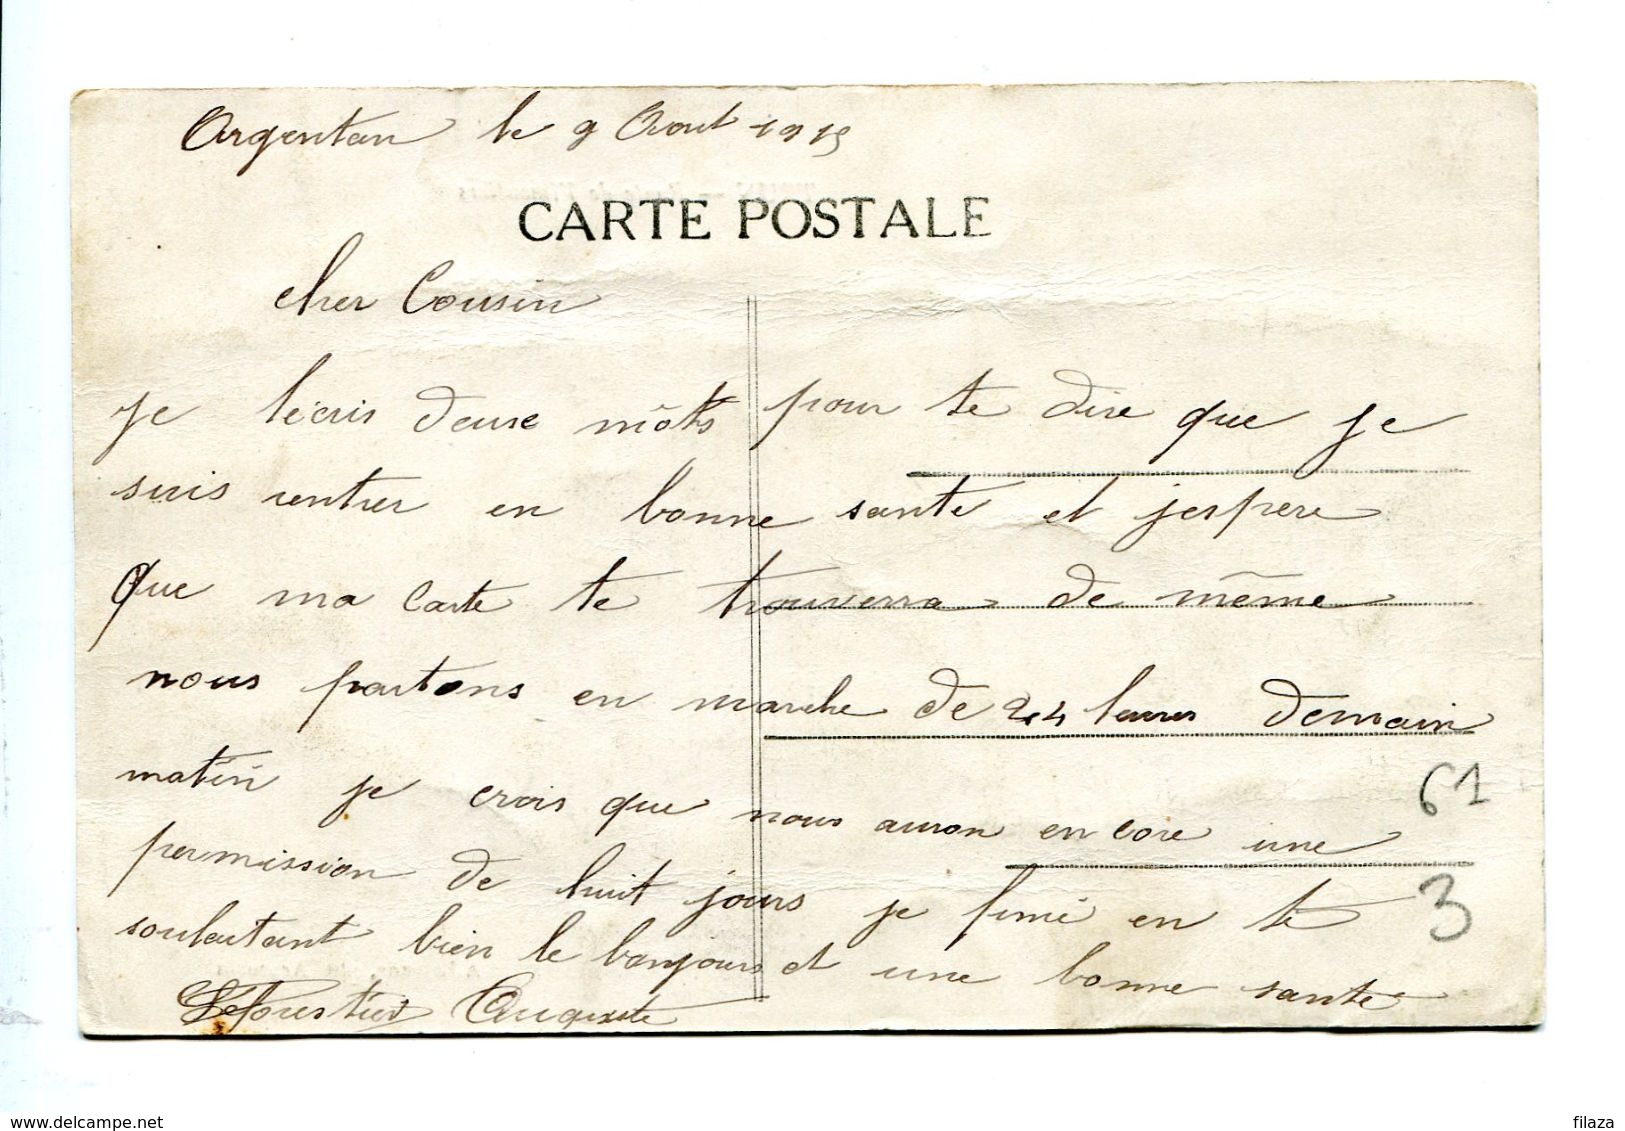 Argentan le 9 Aout 1915
CARTE POSTALE
cher Cousin
je técris deuxe môts pour te dire que je
suis rentrer en bonne santé et jespere
que ma carte te trouverra de même
nous partons en marche de 24 heures demain
matin je crois que nous auron en core une
61
permission de huit jours je fini en te
3
souhaitant bien le bonjours et une bonne santé
Auguste
www.delcampe.net
filaza